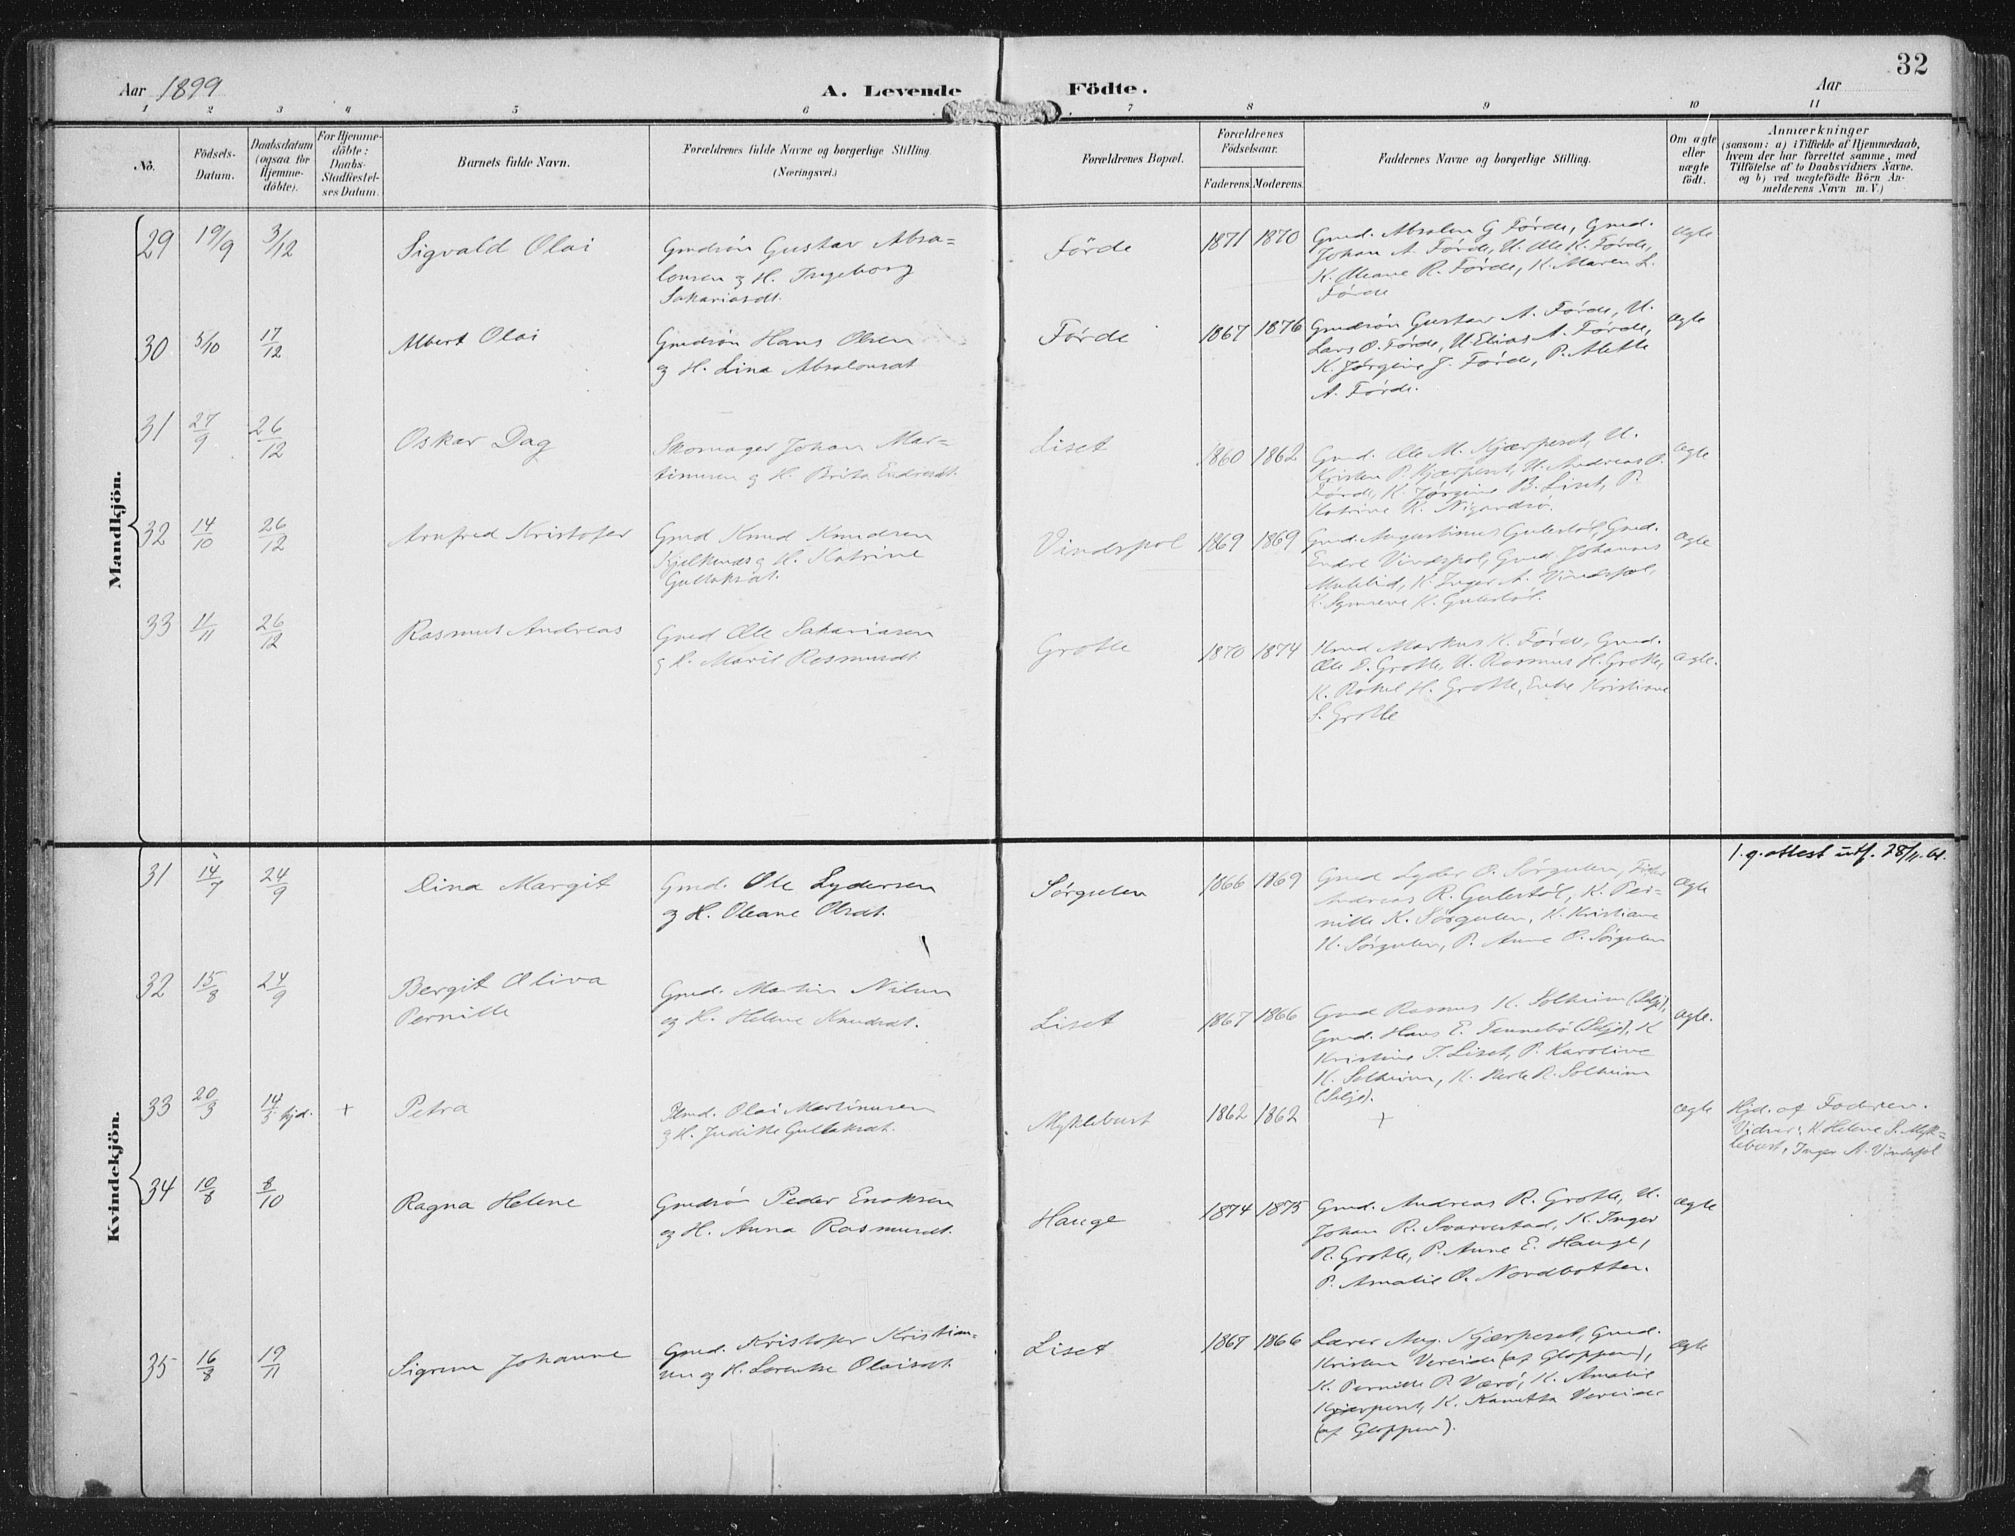 32
Aar 1899
A. Levende
Födte.
Aar
1 2 3 4 5 6 7 8 9 10 11
No.
Födsels-
Datum.
Daabsdatum
(ogsaa for
Hjemme-
döbte).
For Hjemme-
döbte:
Daabs-
Stadfæstel-
ses Datum.
Barnets fulde Navn.
Forældrenes fulde Navne og borgerlige Stilling.
(Næringsvei.)
Forældrenes Bopæl.
Forældrenes
Födselsaar.
Faderens. Moderens.
Faddernes Navne og borgerlige Stilling.
Om ægte
eller
uægte
födt.
Anmærkninger
(saasom: a) i Tilfælde af Hjemmedaab,
hvem der har forrettet samme, med
Tilföielse af to Daabsvidners Navne.
og b) ved uægtefödte Börn An-
melderens Navn m. V.)
Mandkjön.
29 19/9 3/12
Sigvald Olai
Gmdsøn Gustav Absa-
lonsen & H. Ingeborg
Sakariasdt.
Förde
1871 1870
Gmd. Absalon G Førde, Gmd.
Johan A. Førde, U. Ole K. Førde,
K. Oleane R. Førde, K. Maren L.
Førde
Ægte
30 5/10 17/12
Albert Olai
Gmdsøn Hans Olsen
og H. Lina Absalonsdt
Førde
1867 1876
Gmdsøn Gustav A. Førde, U.
Lars O. Førde, U Elias A. Førde,
K. Jørgine J. Førde, P. Alette
A. Førde.
Ægte
31 27/9 26/12
Oskar Dag
Skomager Johan Mar-
tinusen og H. Brita Endresdt.
Liset
1860 1862
Gmd. Ole M. Kjærpeset, U.
Kristen P. Kjærpeset, U. Andreas P.
Førde, K. Jørgine B. Liset, P.
Katrine K. Nigardsø.
Ægte
32 14/10 26/12
Arnfred Kristofer
Gmd Knud Knudsen
Kjelkenes og H. Katrine
Gullaksdt.
Vindspol
1869 1869
Gmd. Augustinus Gulestøl, Gmd.
Endre Vindspol, Gmd Johannes
Muklid, K. Inger A. Vindspol,
K. Synneve K. Gulestøl.
Ægte
33 11/11 26/12
Rasmus Andreas
Gmd Ole Sakariasen
og H. Marit Rasmusdt.
Grotle
1870 1874
Kmd Markus K. Førde, Gmd.
Ole D. Grotle, U. Rasmus H. Grotle,
K. Rakel H. Grotle, Enke Kristiane
S. Grotle
Ægte.
Kvindekjön.
31 14/7 24/9
Dina Margit
Gmd. Ole Lydersen
og H. Oleane Olsdt.
Sørgulen
1866 1869
Gmd Lyder O. Sørgulen, Fisker
Andreas R. Gulestøl, K. Per-
nille K. Sørgulen, K. Kristiane
H. Sørgulen, P. Anne O. Sørgulen
Ægte
1.g. attest utf. 28/11.61.
32 15/8 24/9
Bergit Oliva
Pernille
Gmd. Martin Nilsen
og H. Helene Knudsdt.
Liset
1867 1866
Gmd Rasmus K. Solheim (Selje),
Gmd. Hans E. Tennebø (Selje), K
Kristine J. Liset, P. Karoline
K. Solheim, K. Marte R. Solheim
(Selje).
Ægte.
33 20/3 14/5 hjd. +
Petra
Gmd. Olai Martinusen
og H. Judithe Gullaksdt.
Myklebust
1862 1862
+
Ægte
Hjd. af Faderen.
Vidner: K Helene S. Myk-
lebust, Inger A. Vindspol
34 10/8 8/10
Ragna Helene
Gmdsøn Peder Enoksen
og H. Anna Rasmusdt.
Hauge
1874 1875
Gmd. Andreas R. Grotle, U.
Johan R. Svarvestad, K. Inger
R. Grotle, P. Anne E. Hauge,
P. Amalie O. Nordbotten.
Ægte
35 16/8 19/11
Sigrun Johanne
Gmd. Kristofer Kristian-
sen og H. Lorentse Olaisdt.
Liset
1867 1866
Lærer Aug. Kjærpeset, Gmd.
Kristen Vereide (af Gloppen),
K. Pernille P. Værø, K. Amalie
Kjærpeset, K. Vereide
(af Gloppen).
Ægte